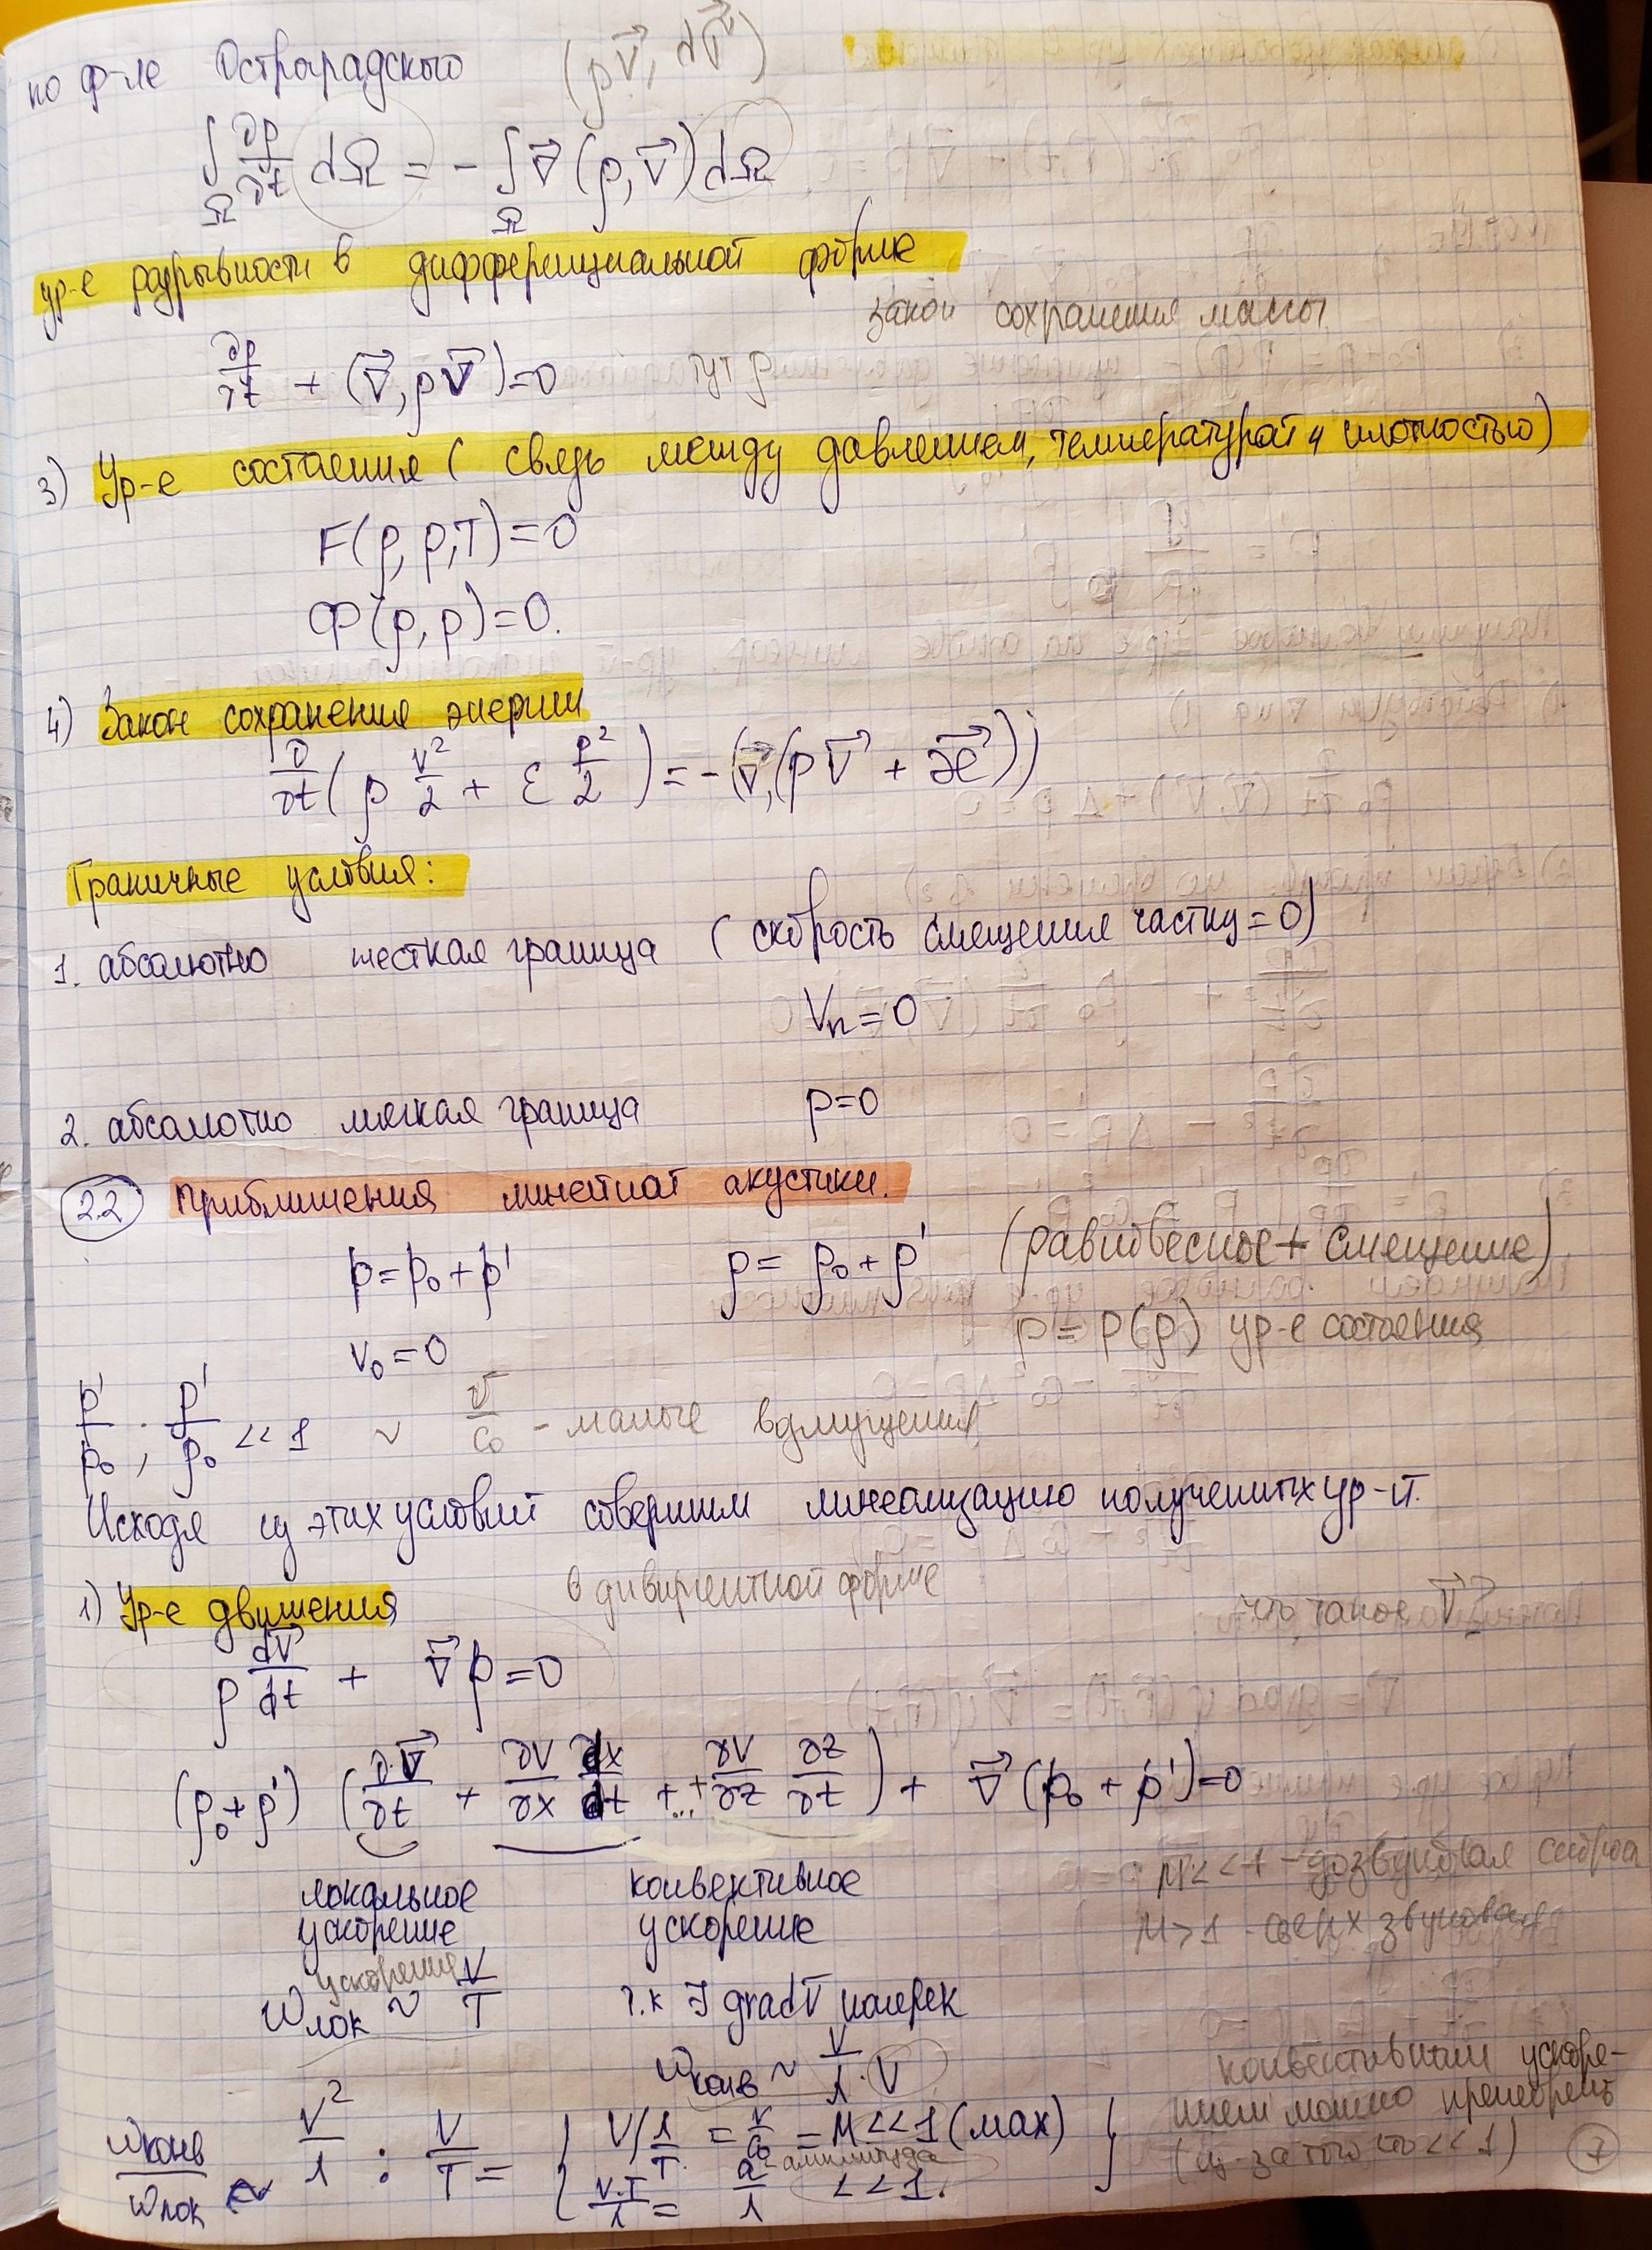 по ф-ле Остроградского (ρV⃗, dΩ⃗)
∫_Ω ∂ρ/∂t dΩ = - ∫_Ω ∇⃗(ρ,V⃗)dΩ
ур-е разрывности в дифференциальной форме
закон сохранения массы
∂ρ/∂t + (∇⃗, ρV⃗)=0 тут ρ
3) Ур-е состояния ( связь между давлением, температурой и плотностью)
F(ρ, p, T)=0
Ф(ρ, p)=0.
4) Закон сохранения энергии
∂/∂t(ρ V²/2 + ε ρ²/2) = -(∇⃗,(pV⃗ + æ⃗))
Граничные условия:
1. абсолютно жесткая граница ( скорость смещения частиц=0)
Vn=0
2. абсолютно мягкая граница p=0
2.2 Приближения линейной акустики.
p=p₀+p' ρ= ρ₀+ρ' (равновесное + смещение)
v₀=0 p = p(ρ) ур-е состояния
p'/p₀, ρ'/ρ₀ <<1 ~ v/c₀ - малые возмущения
Исходя из этих условий совершим линеализацию полученных ур-й.
в дивергентной форме
1) Ур-е движения что такое V⃗?
ρ dV⃗/dt + ∇⃗p=0
(ρ₀+ρ') (∂V⃗/∂t + ∂V/∂x dx/dt +...+ ∂V/∂z ∂z/∂t) + ∇⃗(p₀ + p')=0
M<<1 - дозвуковая скорос
локальное конвективное
ускорение ускорение M>1 - сверхзвуковая
ускорения
Wлок ~ V/T т.к ∃ gradV⃗ поперек
Wконв ~ V/λ · V
конвективным ускоре-
нием можно пренебречь
(из-за того, что <<1)
Wконв/Wлок ~ V²/λ : V/T = { V/λ/T = V/c₀ = M<<1 (мах) }
V·T/λ = a/λ <<1.
a - амплитуда
7